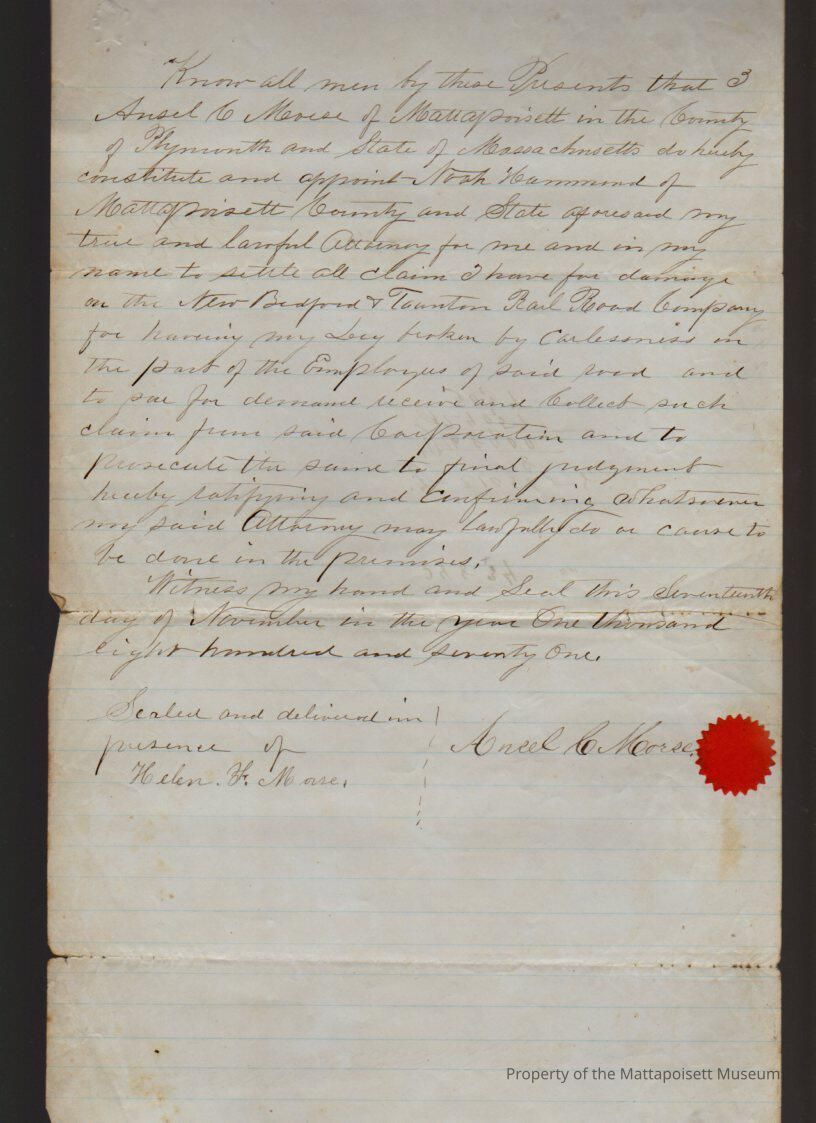 Know all men by these Presents that I
Ansel C Morse of Mattapoisett in the County
of Plymouth and State of Massachusetts do hereby
constitute and appoint Noah Hammond of
Mattapoisett County and State aforesaid my
true and lawful Attorney for me and in my
name to settle all claim I have for damage
on the New Bedford & Taunton Rail Road Company
for having my Leg broken by Carlessness on
the part of the Employees of said road and
to sue for demand receive and Collect such
claim from said Corporation and to
prosecute the same to final judgment
hereby ratifying and Confirming whatsoever
my said Attorney may lawfully do or cause to
be done in the premises.
Witness my hand and Seal this Seventeenth
day of November in the year One thousand
eight hundred and seventy One.
Sealed and delivered in
presence of
Ansel C Morse.
Helen. F. Morse.
Property of the Mattapoisett Museum